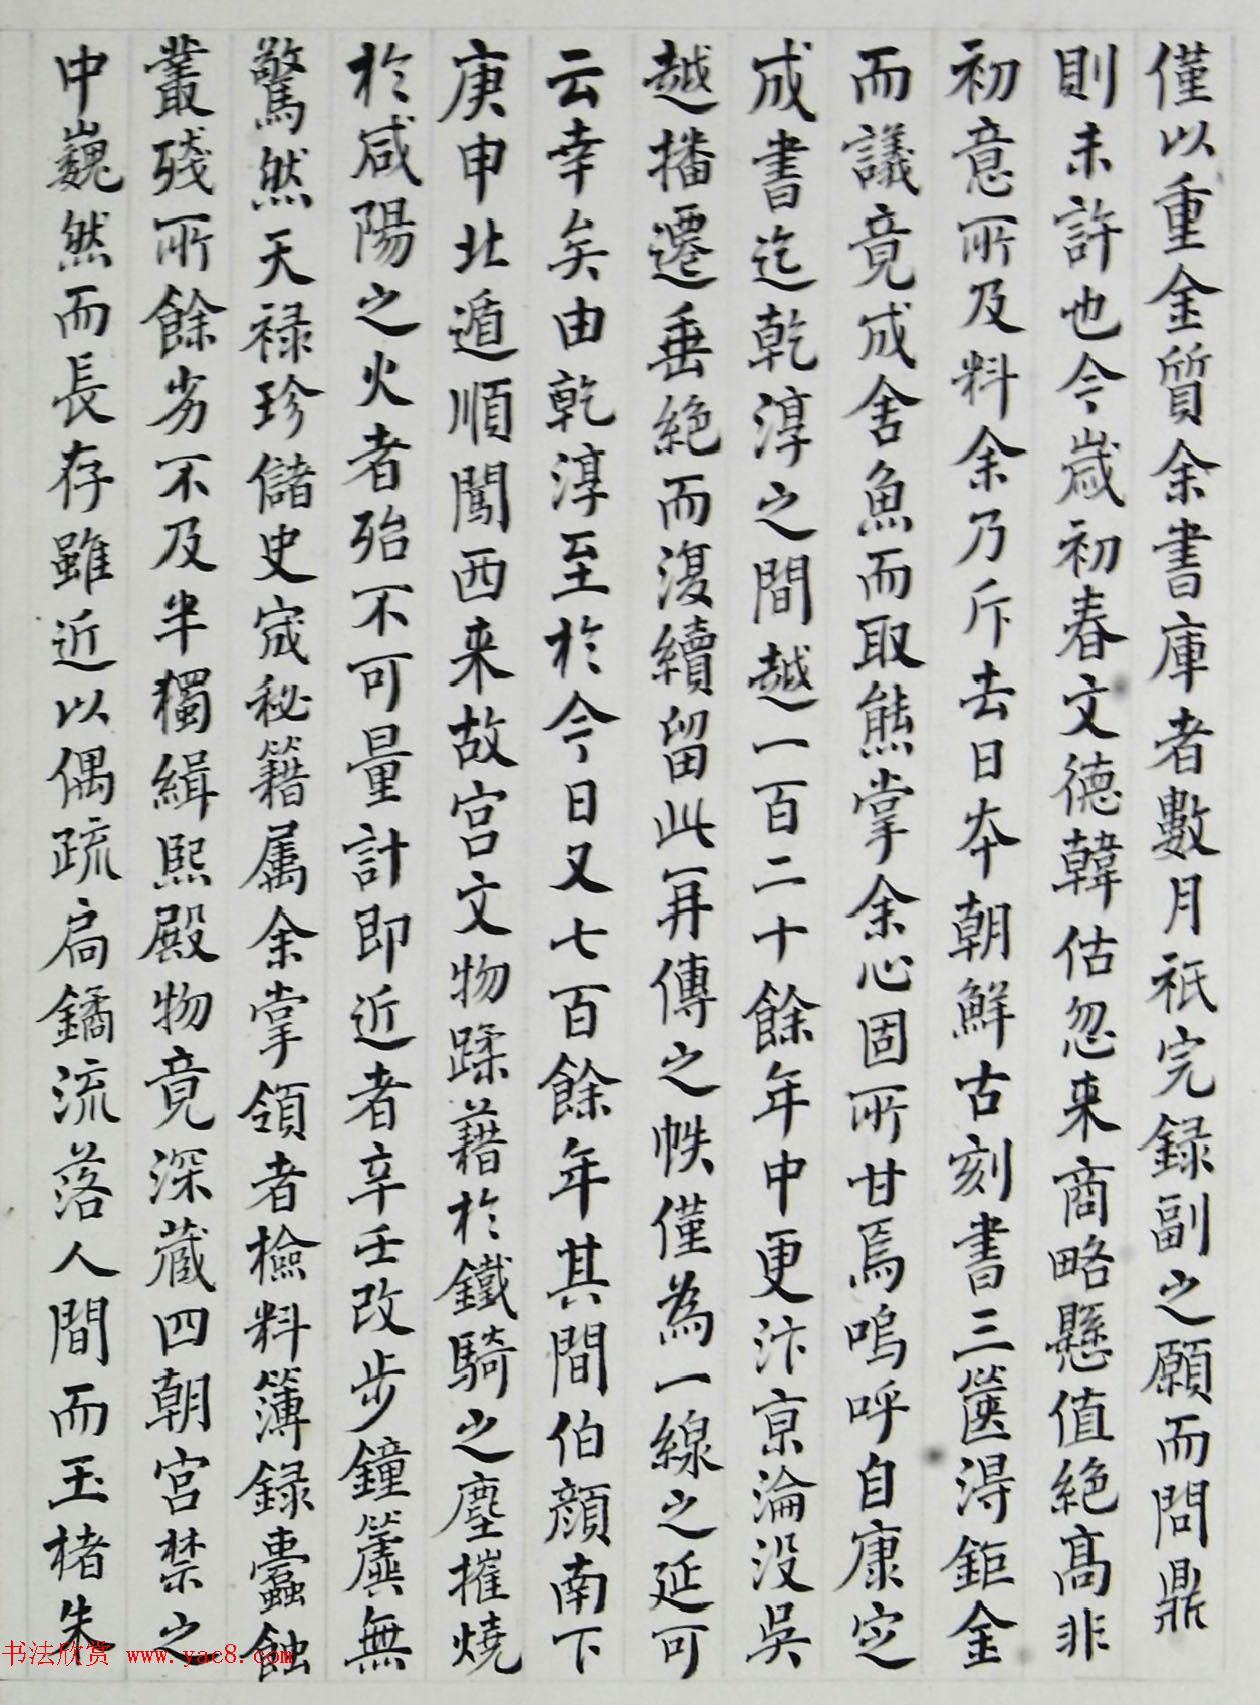 僅以重金質余書庫者數月祇完録副之願而問鼎
則未許也今嵗初春文德韓估忽来商略懸值絶髙非
初意所及料余乃斥去日本朝鮮古刻書三箧得鉅金
而議竟成舍魚而取熊掌余心固所甘焉嗚呼自康定
成書迄乾淳之間越一百二十餘年中更汴京淪没吳
越播遷垂絶而復續留此一再傳之帙僅為一線之延可
云幸矣由乾淳至於今日又七百餘年其間伯顔南下
庚申北遁順闖西来故宫文物蹂藉於鐵騎之塵摧燒
於咸陽之火者殆不可量計即近者辛壬改步鐘簴無
驚然天禄珍儲史宬秘籍属余掌領者檢料簿録蠹蝕
叢殘所餘劣不及半獨緝熙殿物竟深藏四朝宫禁之
中巍然而長存雖近以偶疏扃鐍流落人間而玉楮朱
书法欣赏 www.yac8.com